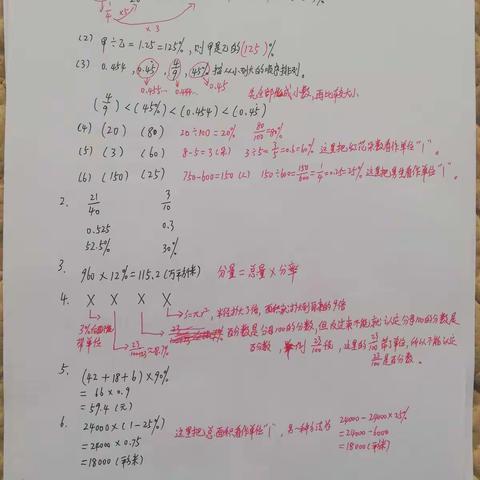 1/4 ×5
×3
(2) 甲÷乙=1.25=125%,则甲是乙的(125)%
(3) 0.454, 0.45, 4/9, 45% 按从小到大的顺序排列。
0.455… 0.444… 0.45 先全部化成小数,再比较大小
(4/9)<(45%)<(0.454)<(0.45)
(4) (20) (80) 20÷100=20% 80/100=80%
(5) (3) (60) 8-5=3(朵) 3÷5=3/5=0.6=60% 这里把红花朵数看作单位"1"。
(6) (150) (25) 750-600=150(人) 150÷600=150/600=1/4=0.25=25% 这里把男生看作单位"1"。
2. 21/40 3/10
0.525 0.3
52.5% 30%
3. 960×12%=115.2(万平方千米) 分量=总量×分率
4. X X X X
S=πr², 半径扩大3倍,面积就扩大到原来的9倍
百分数是分母100的分数,但反过来不能就认定分母100的分数是
百分数,例 23/100 这里的 23/100 带了单位,所以不能认定
23/100 是百分数。
3%
带单位
≈8.7%
5. (42+18+6)×90%
=66×0.9
=59.4(元)
6. 24000×(1-25%) 这里把总面积看作单位"1",另一种方法为 24000-24000×25%
=24000×0.75 =24000-6000
=18000(平方米) =18000(平方米)